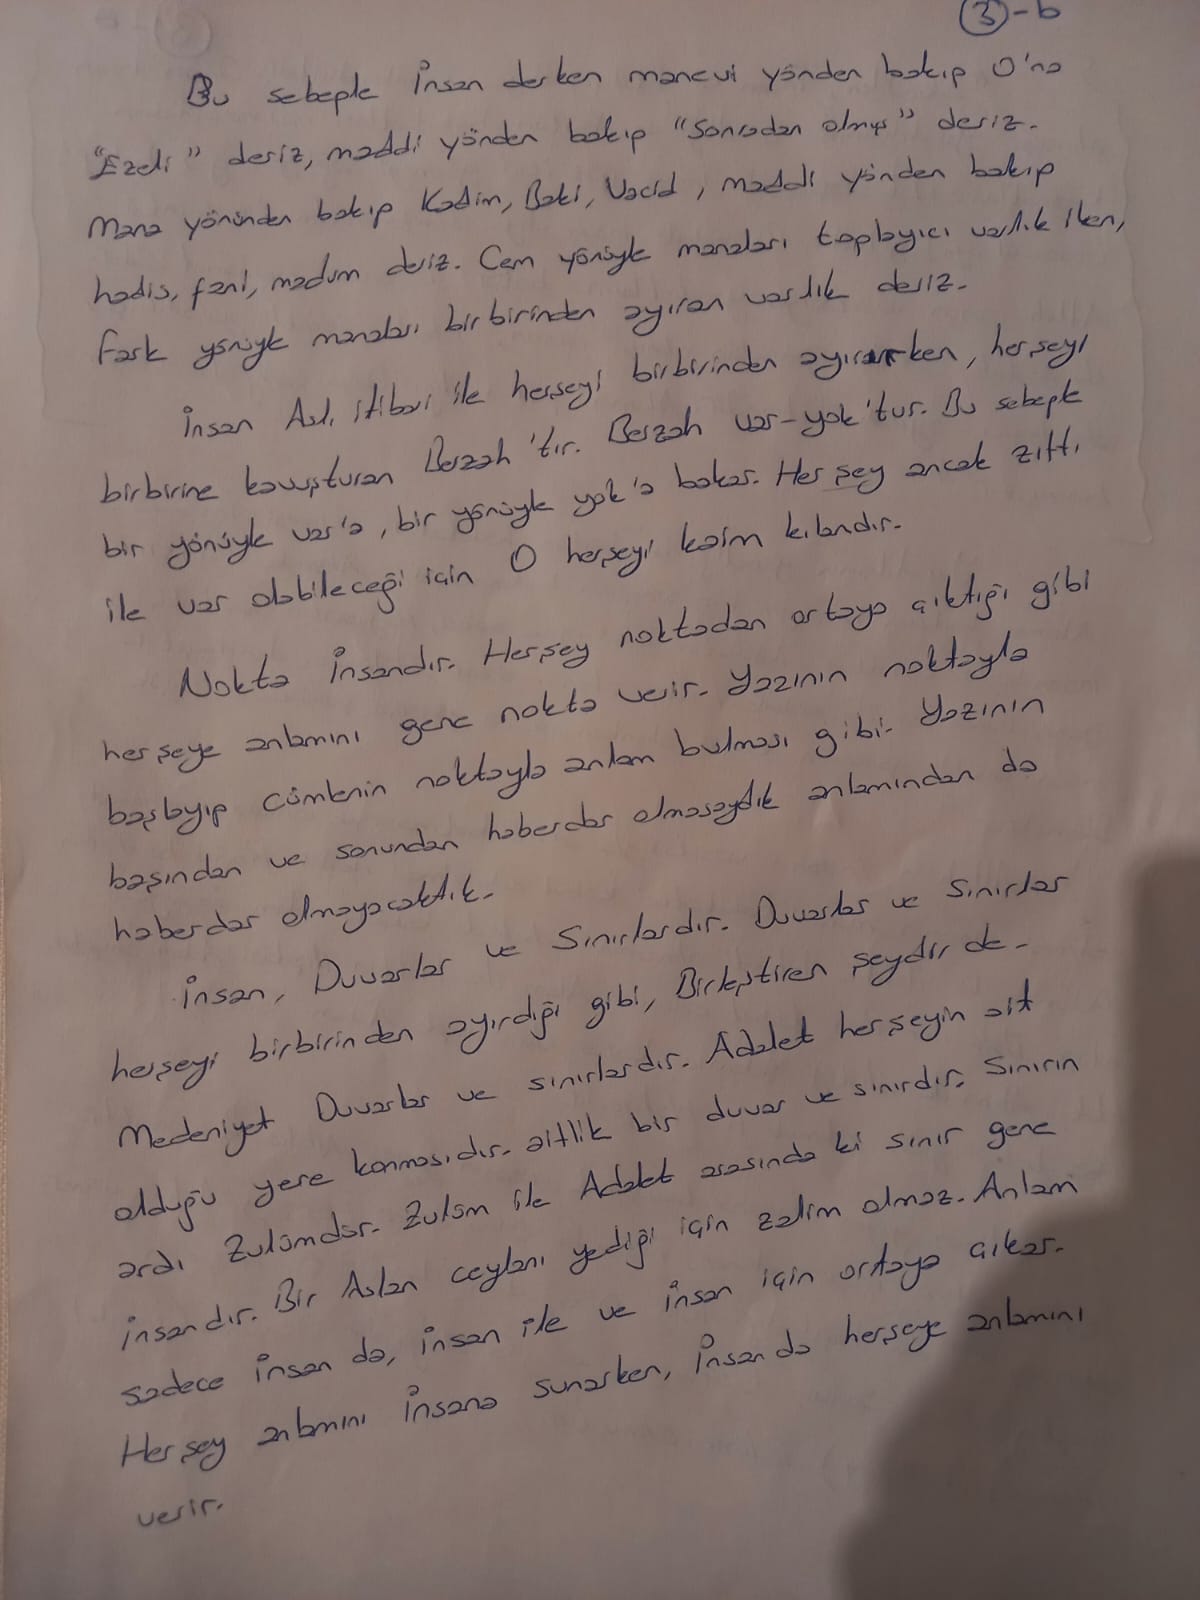 ③-b
Bu sebeple İnsan derken manevi yönden bakıp O'na
"Ezeli" deriz, maddi yönden bakıp "Sonradan olmuş" deriz.
Mana yönünden bakıp Kadim, Baki, Vacid, maddi yönden bakıp
hadis, fani, madum deriz. Cem yönüyle manaları toplayıcı varlık iken,
Fark yönüyle manaları birbirinden ayıran varlık deriz.
İnsan Aslı itibari ile herşeyi birbirinden ayırırken, herşeyi
birbirine kavuşturan Berzah'tır. Berzah var-yok'tur. Bu sebeple
bir yönüyle var'a, bir yönüyle yok'a bakar. Her şey ancak zıttı
ile var olabileceği için O herşeyi kaim kılandır.
Nokta İnsandır. Herşey noktadan ortaya çıktığı gibi
herşeye anlamını gene nokta verir. Yazının noktayla
başlayıp cümlenin noktayla anlam bulması gibi. Yazının
başından ve sonundan haberdar olmasaydık anlamından da
haberdar olmayacaktık.
İnsan, Duvarlar ve Sınırlardır. Duvarlar ve Sınırlar
herşeyi birbirinden ayırdığı gibi, Birleştiren şeydir de.
Medeniyet Duvarlar ve sınırlardır. Adalet herşeyin ait
olduğu yere konmasıdır. aitlik bir duvar ve sınırdır. Sınırın
ardı Zulümdür. Zulüm ile Adalet arasında ki sınır gene
insandır. Bir Aslan ceylanı yediği için zalim olmaz. Anlam
sadece İnsan da, İnsan ile ve İnsan için ortaya çıkar.
Her şey anlamını İnsana sunarken, İnsan da herşeye anlamını
verir.